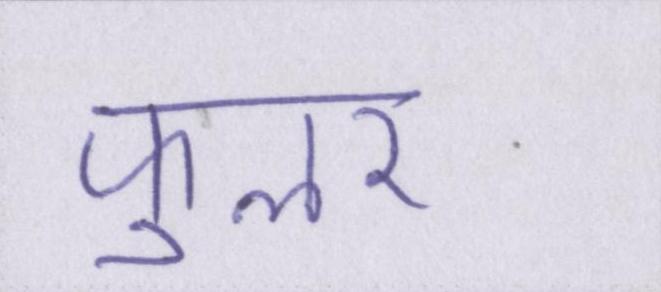 फुलर